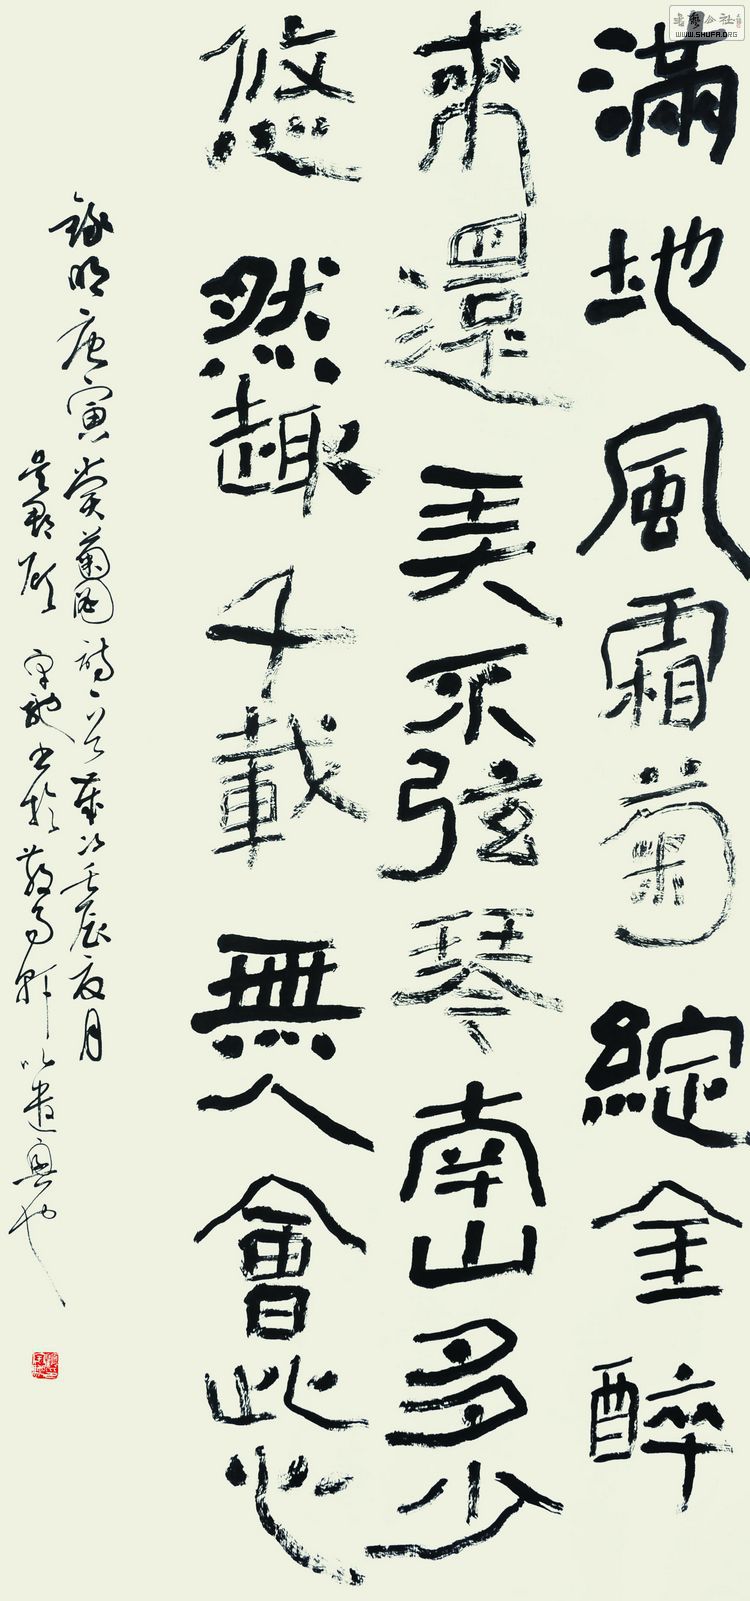 書藝公社
WWW.SHUFA.ORG
滿地風霜菊綻金醉
來還弄不弦琴南山多少
悠然趣千載無人會此心
錄明唐寅賞菊圖詩一首歲次壬辰夏月
書於軒以遣興也